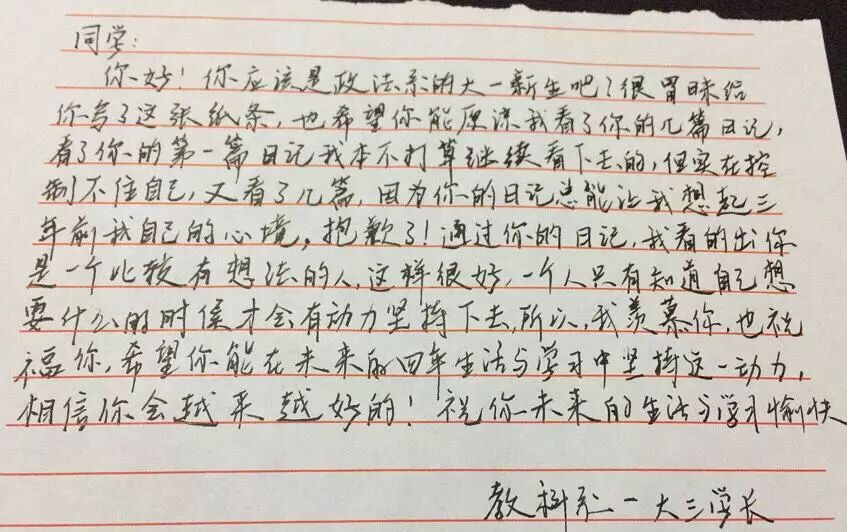 同学:
你好！你应该是政法系的大一新生吧？很冒昧给
你写了这张纸条，也希望你能原谅我看了你的几篇日记，
看了你的第一篇日记我本不打算继续看下去的，但实在控
制不住自己，又看了几篇，因为你的日记总能让我想起三
年前我自己的心境。抱歉了！通过你的日记，我看的出你
是一个比较有想法的人，这样很好，一个人只有知道自己想
要什么的时候才会有动力坚持下去，所以，我羡慕你，也祝
福你，希望你能在未来的四年生活与学习中坚持这一动力，
相信你会越来越好的！祝你未来的生活与学习愉快
教科系一大三学长